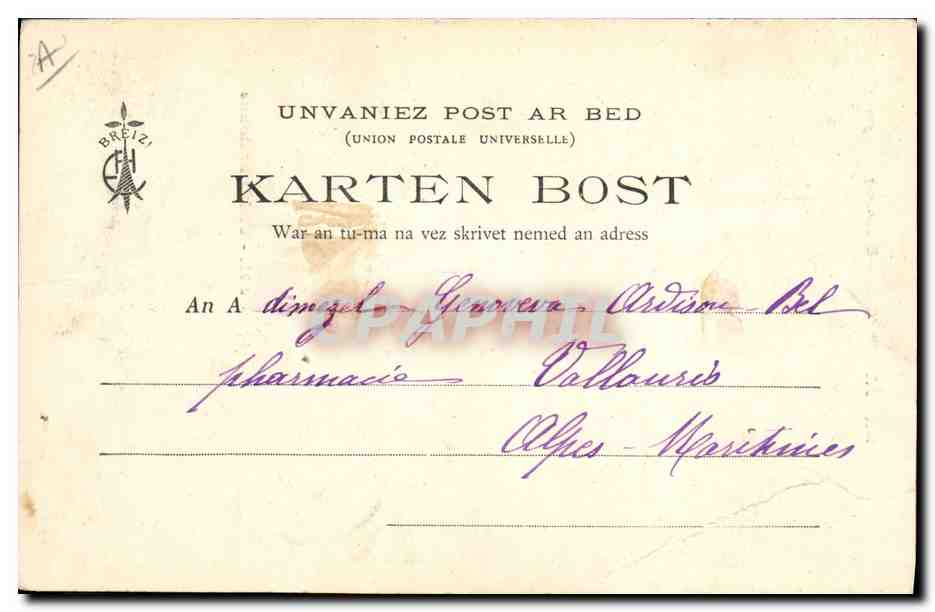 A
BREIZ!
UNVANIEZ POST AR BED
(UNION POSTALE UNIVERSELLE)
KARTEN BOST
War an tu-ma na vez skrivet nemed an adress
An A dimezel Genoveva Ardison-Bel
pharmacie Vallauris
Alpes-Maritimes
CPAPHIL